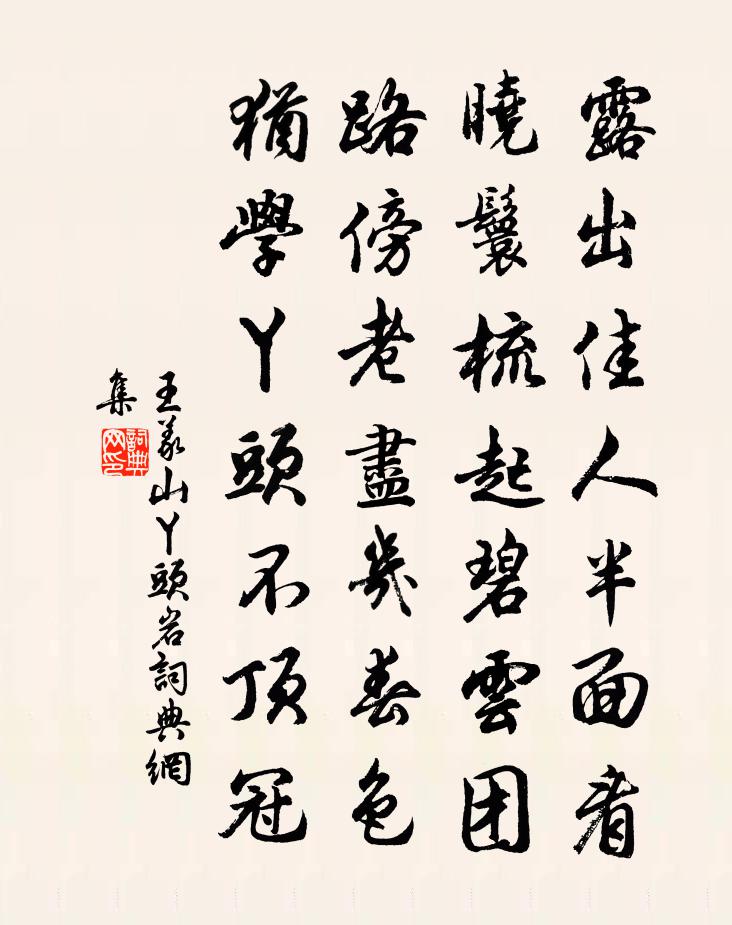 露出佳人半面看
曉鬟梳起碧雲團
路傍老盡幾春色
猶學丫頭不頂冠
王義山丫頭岩詞典網
集
詞典
网印